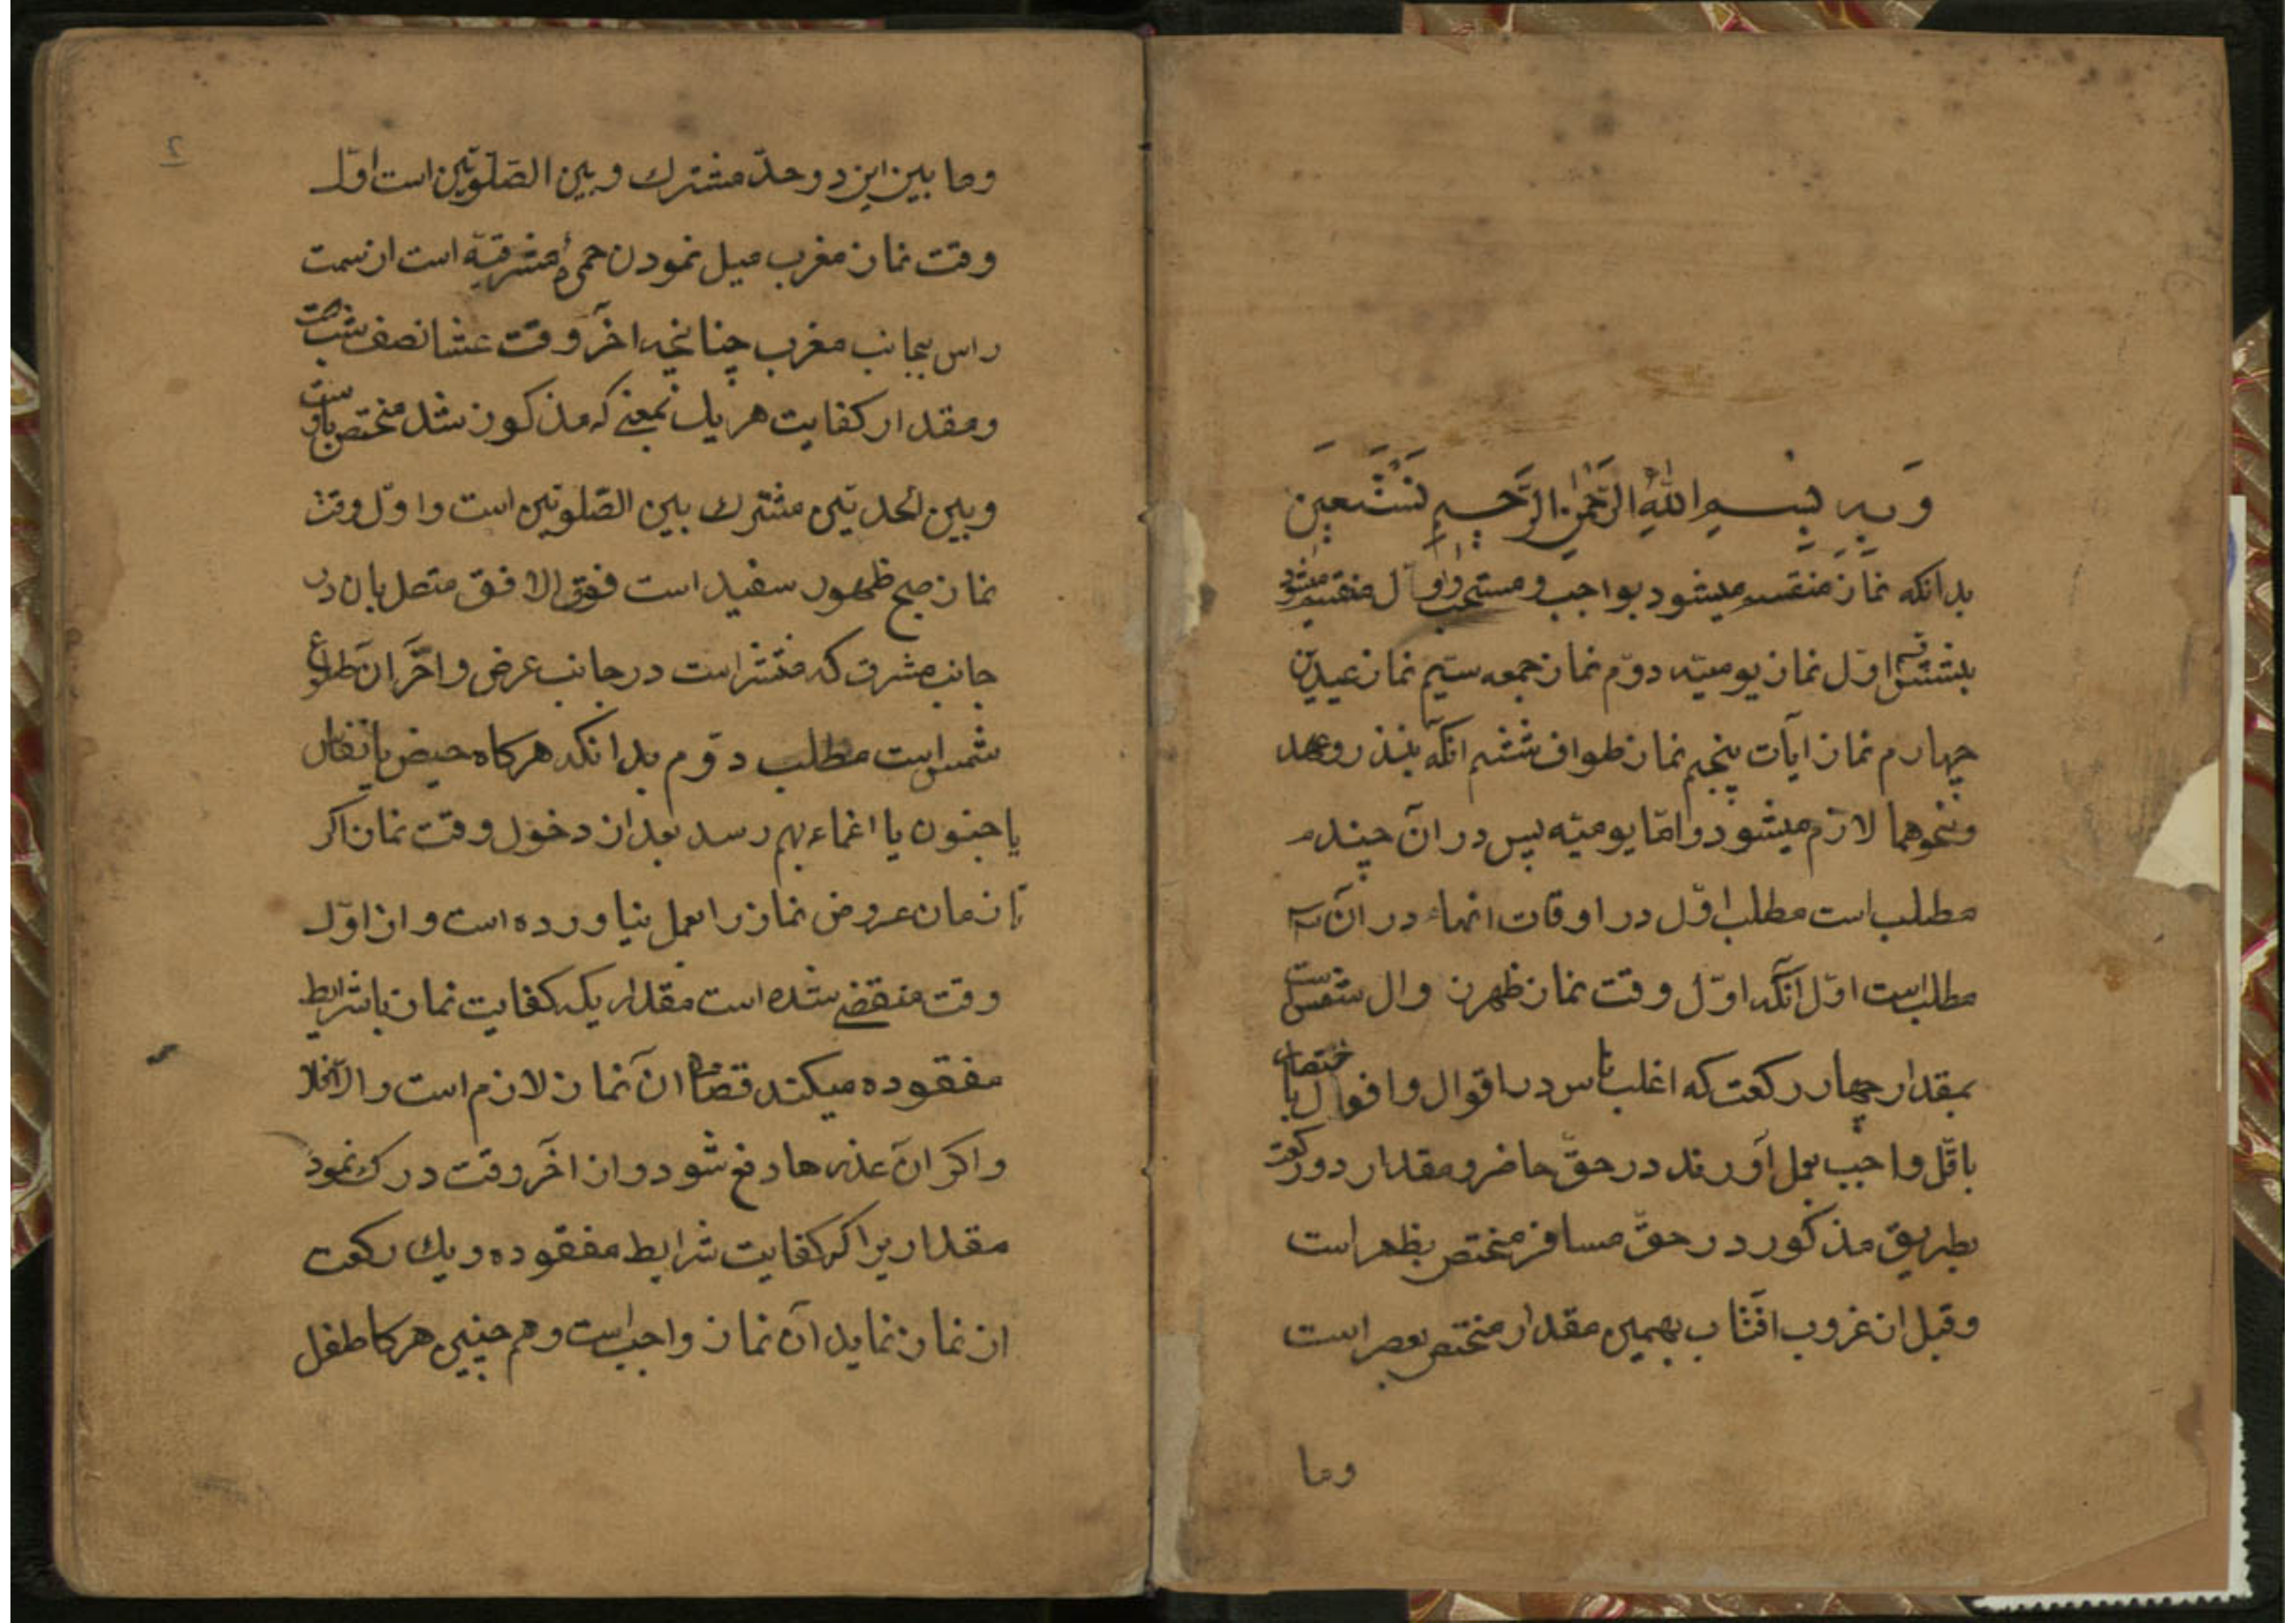 وبه بِسْمِ اللّهِ الرَّحْمنِ الرَّحِيمِ نَسْتَعِين
بدانکه نماز منقسم میشود بواجب و مستحب و اوّل منقسم میشود
بشش قسم اوّل نماز یومیّه دوّم نماز جمعه سیّم نماز عیدین
چهارم نماز آیات پنجم نماز طواف ششم انکه بنذر و عهد
ونحوهما لازم میشود و امّا یومیّه پس در ان چند
مطلب است مطلب اوّل در اوقات انهاء در ان سه
مطلب است اوّل آنکه اوّل وقت نماز ظهر زوال شمس است
بمقدار چهار رکعت که اغلب ناس در اقوال و افعال با اختصار
باقلّ واجب بعمل آورند در حقّ حاضر و مقدار دو رکعت
بطریق مذکور در حقّ مسافر مختص بظهر است
وقبل از غروب افتاب بهمین مقدار مختص بعصر است
وما
۲
وما بین این دو حدّ مشترك و بین الصّلوتین است اوّل
وقت نماز مغرب میل نمودن حمرهٔ مشرقیّه است از سمت
راس بجانب مغرب چنانچه اخر وقت عشا نصف شب است
ومقدار کفایت هر یك بمعنی که مذکور شد مختص باوست
وبین الحدّین مشترك بین الصّلوتین است و اوّل وقت
نماز صبح ظهور سفید است فوق الافق متصل بان در
جانب مشرق که منتشر است در جانب عرض و اخر ان طلوع
شمس است مطلب دوّم بدانکه هرکاه حیض یا نفاس
یا جنون یا اغماء بهم رسد بعد از دخول وقت نماز اکر
تا زمان عروض نماز را بعمل نیاورده است و از اوّل
وقت منقضی شده است مقداریکه کفایت نماز با شرایط
مفقوده میکند قضاء ان نماز لازم است والّا فلا
واکر ان عذرها رفع شود و از اخر وقت درك نمود
مقداریرا که کفایت شرایط مفقوده و یك رکعت
از نماز نماید آن نماز واجب است و هم چنین هرکا طفل